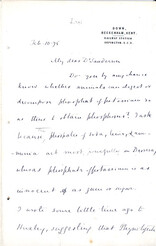 DOWN,
BECKENHAM, KENT.
RAILWAY STATION
ORPINGTON. S.E.R.
Feb. 10. 75
My dear Dr Sanderson
Do you by any chance
know whether animals can digest or
decompose phosphate of potassium so
as thus to obtain phosphorus? I ask
because phosphates of soda, lime, &
ammonia act most powerfully on Drosera,
whereas phosphate of potassium is as
innocent of as gum or sugar.
I wrote some little time ago to
Huxley, suggesting that